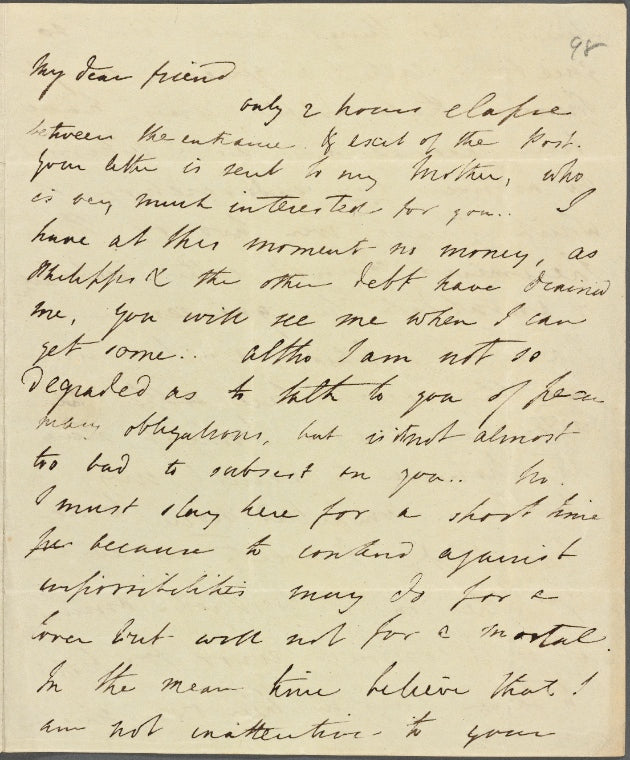 98
My dear friend
only 2 hours elapse
between the entrance & exit of the Post.
Your letter is sent to my Mother, who
is very much interested for you.. I
have at this moment no money, as
Philipps & the other debt have drained
me, you will see me when I can
get some.. altho I am not so
degraded as to talk to you of pecu
niary obligations, but is it not almost
too bad to subsist on you.. no.
I must stay here for a short time
because to contend against
impossibilities may do for a
lover but will not for a mortal.
In the mean time believe that I
am not inattentive to your